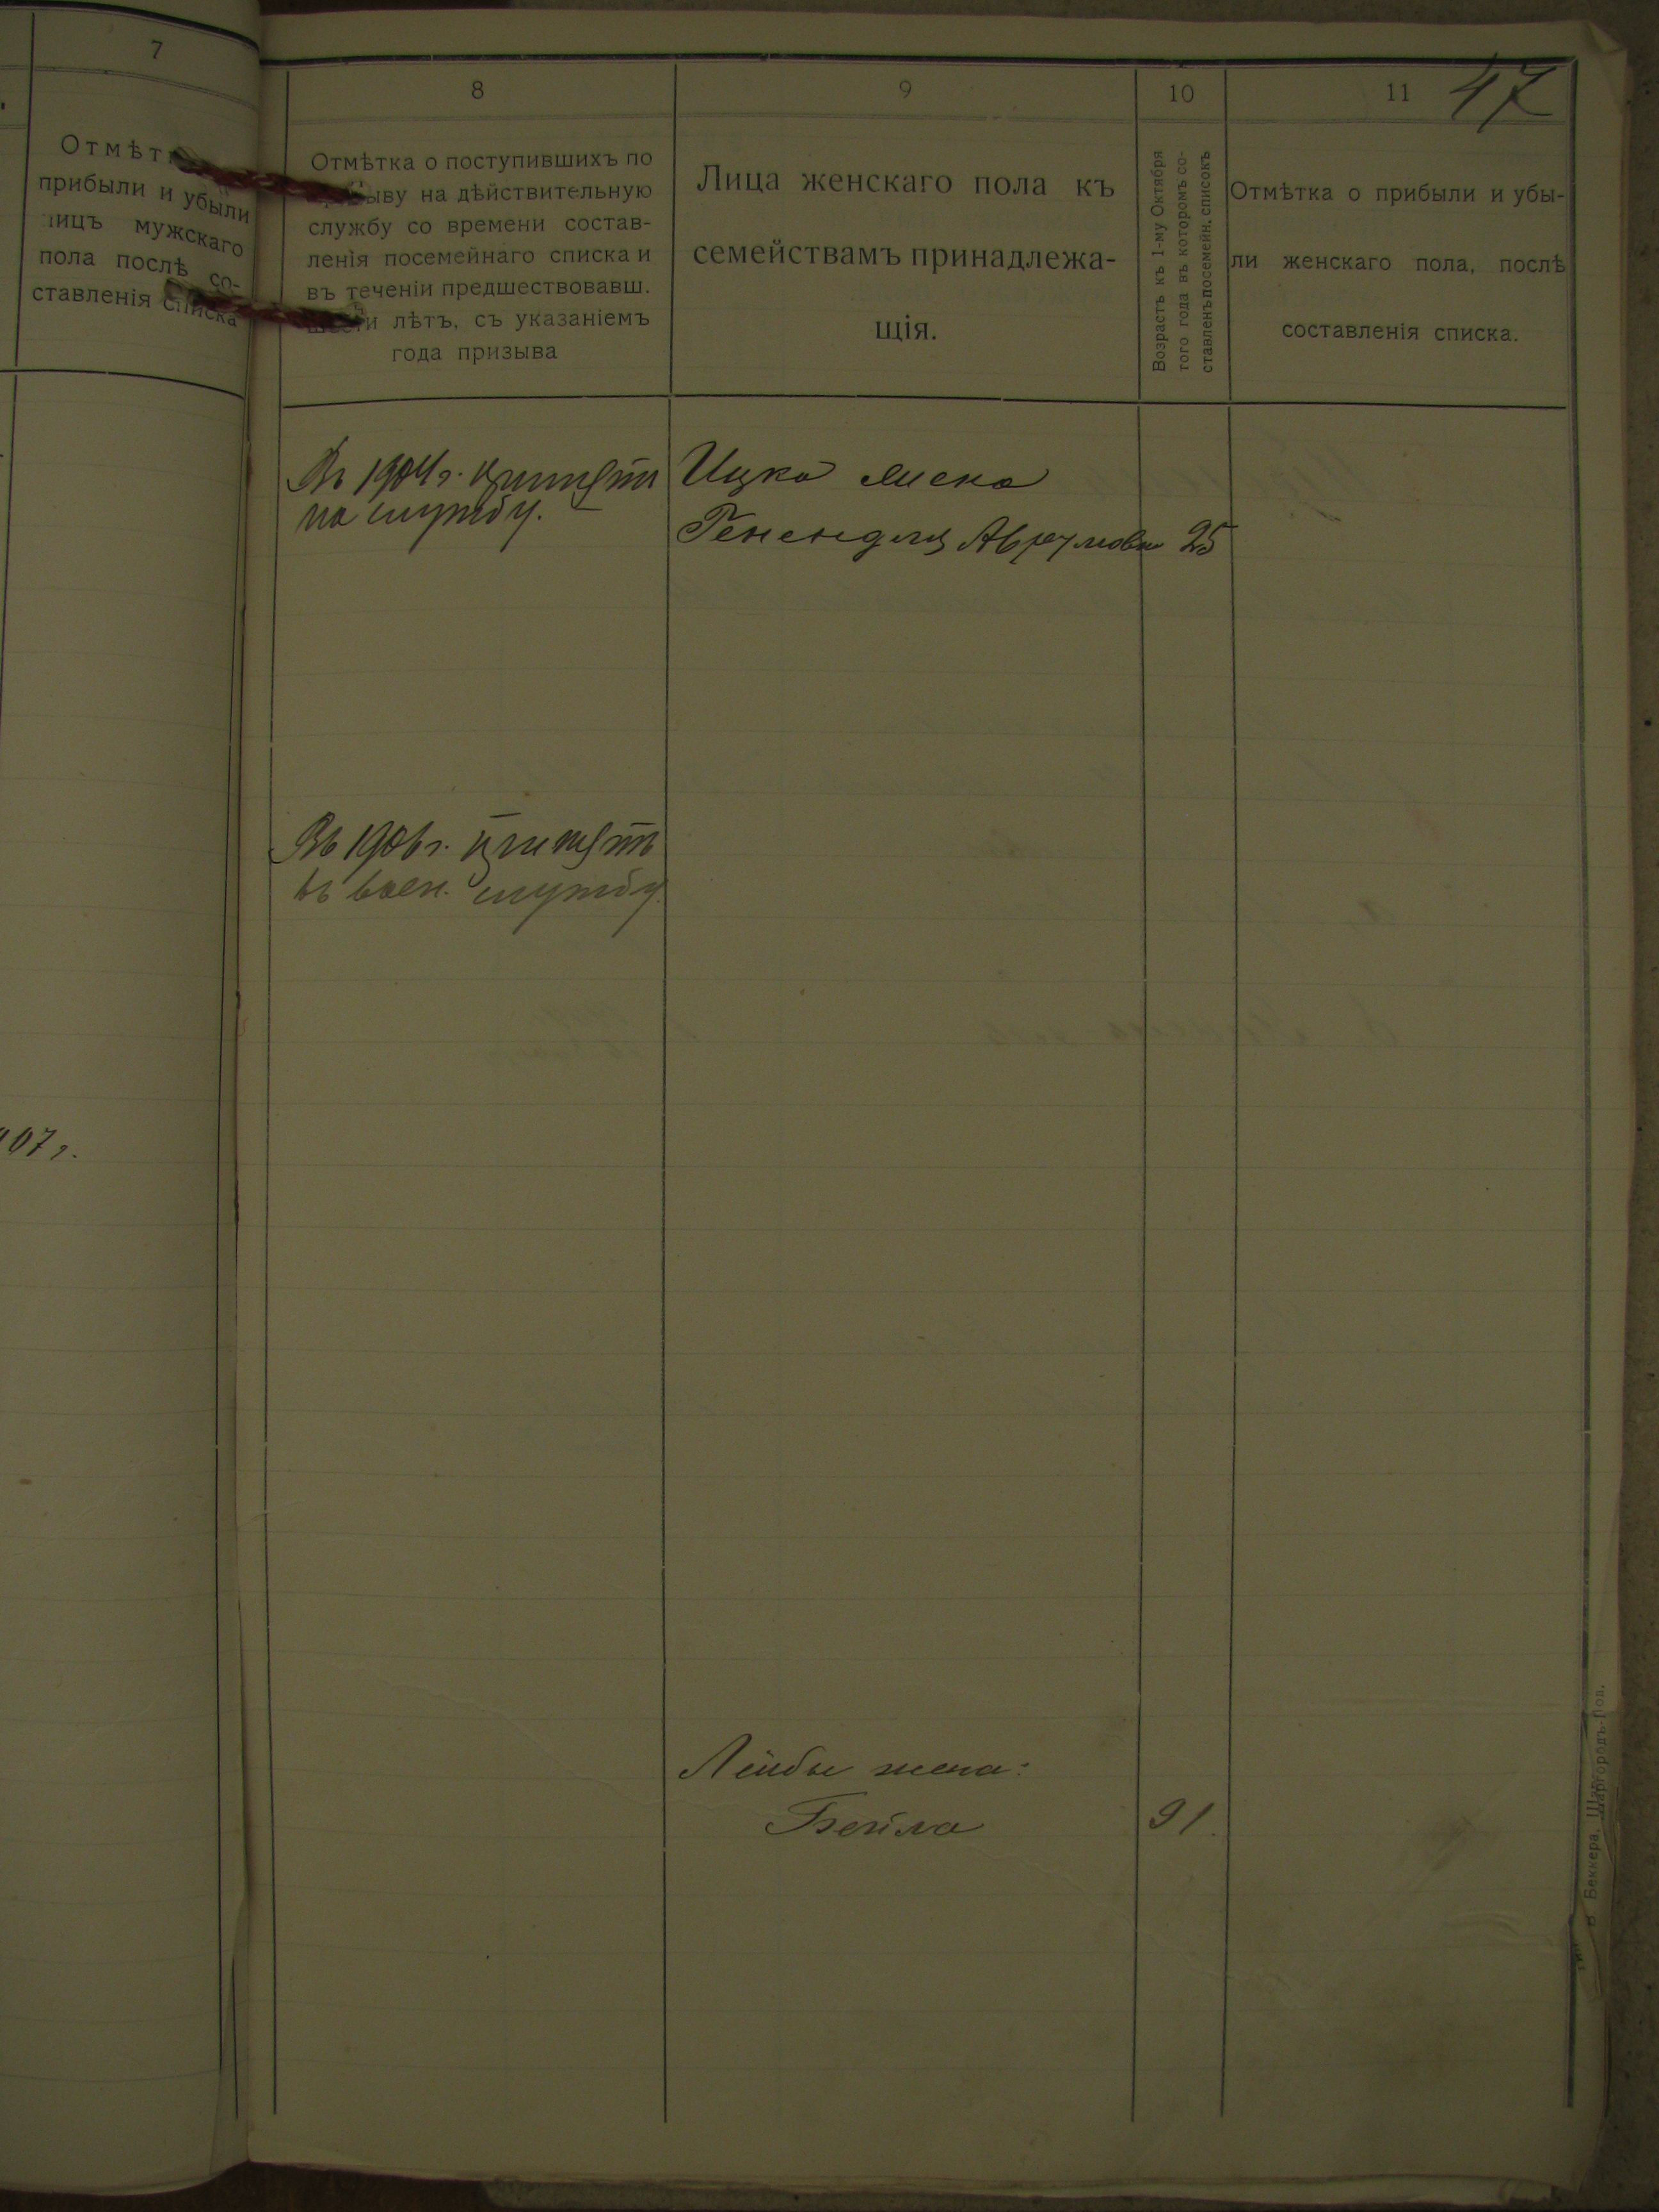 7
Отмѣт
прибыли и убыли
лицъ мужскаго
пола послѣ со-
ставленія списка
07 г.
47
8
Отмѣтка о поступившихъ по
ыву на дѣйствительную
службу со времени состав-
ленія посемейнаго списка и
въ теченіи предшествовавш.
шести лѣтъ, съ указаніемъ
года призыва
9
Лица женскаго пола къ
семействамъ принадлежа-
щія.
10
Возрастъ къ 1-му Октября
того года въ которомъ со-
ставленъ посемейн. списокъ
11
Отмѣтка о прибыли и убы-
ли женскаго пола, послѣ
составленія списка.
Въ 1904 г. принятъ
на службу.
Ицка жена
Генендля Аврумова 25
Въ 1906 г. принятъ
въ воен. службу.
Лейбы жена:
Бейла 91
В. Беккера, Шаргородъ-Под.